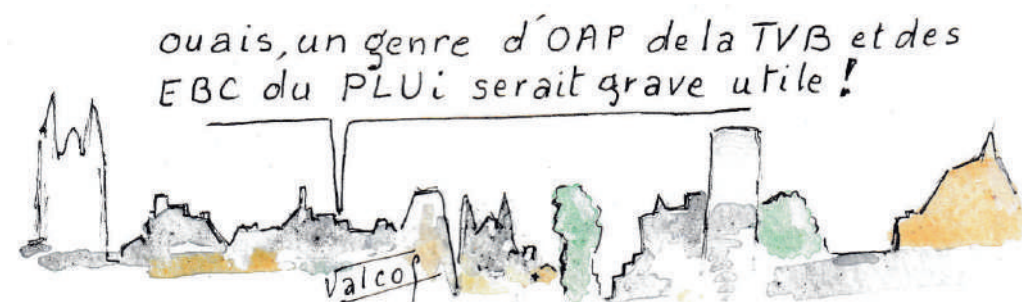 ouais, un genre d'OAP de la TVB et des
EBC du PLUi serait grave utile !
Valcos